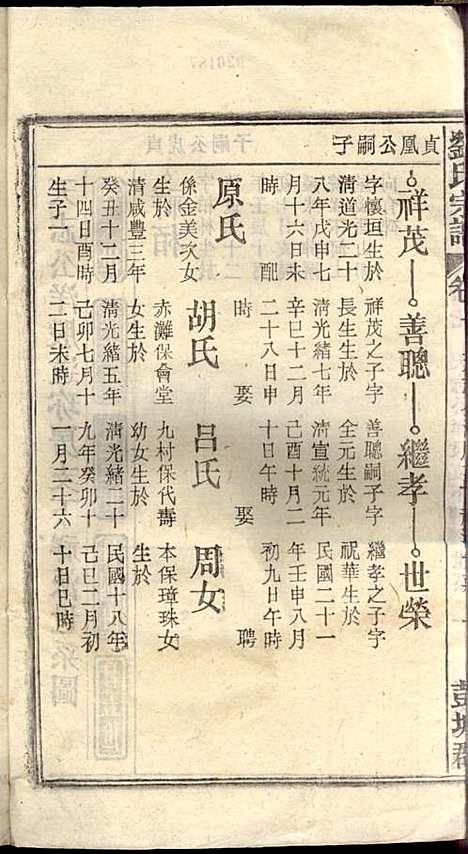 劉氏宗譜
卷
彭城郡
貞凰公嗣子
祥茂
善聰
繼孝
世榮
字懷垣生於
清道光二十
八年戊申七
月十六日未
時 配
原氏
係金美次女
生於
清咸豐三年
癸丑十二月
十四日酉時
生子一
祥茂之子字
長生生於
清光緒七年
辛巳十二月
二十八日申
時 娶
胡氏
赤灘保會堂
女生於
清光緒五年
己卯七月十
二日未時
善聰嗣子字
全元生於
清宣統元年
己酉十月二
十日午時
娶
呂氏
九村保代壽
幼女生於
清光緒二十
九年癸卯十
一月二十六
繼孝之子字
祝華生於
民國二十一
年壬申八月
初九日午時
聘
周女
本保璋珠女
生於
民國十八年
己巳二月初
十日巳時